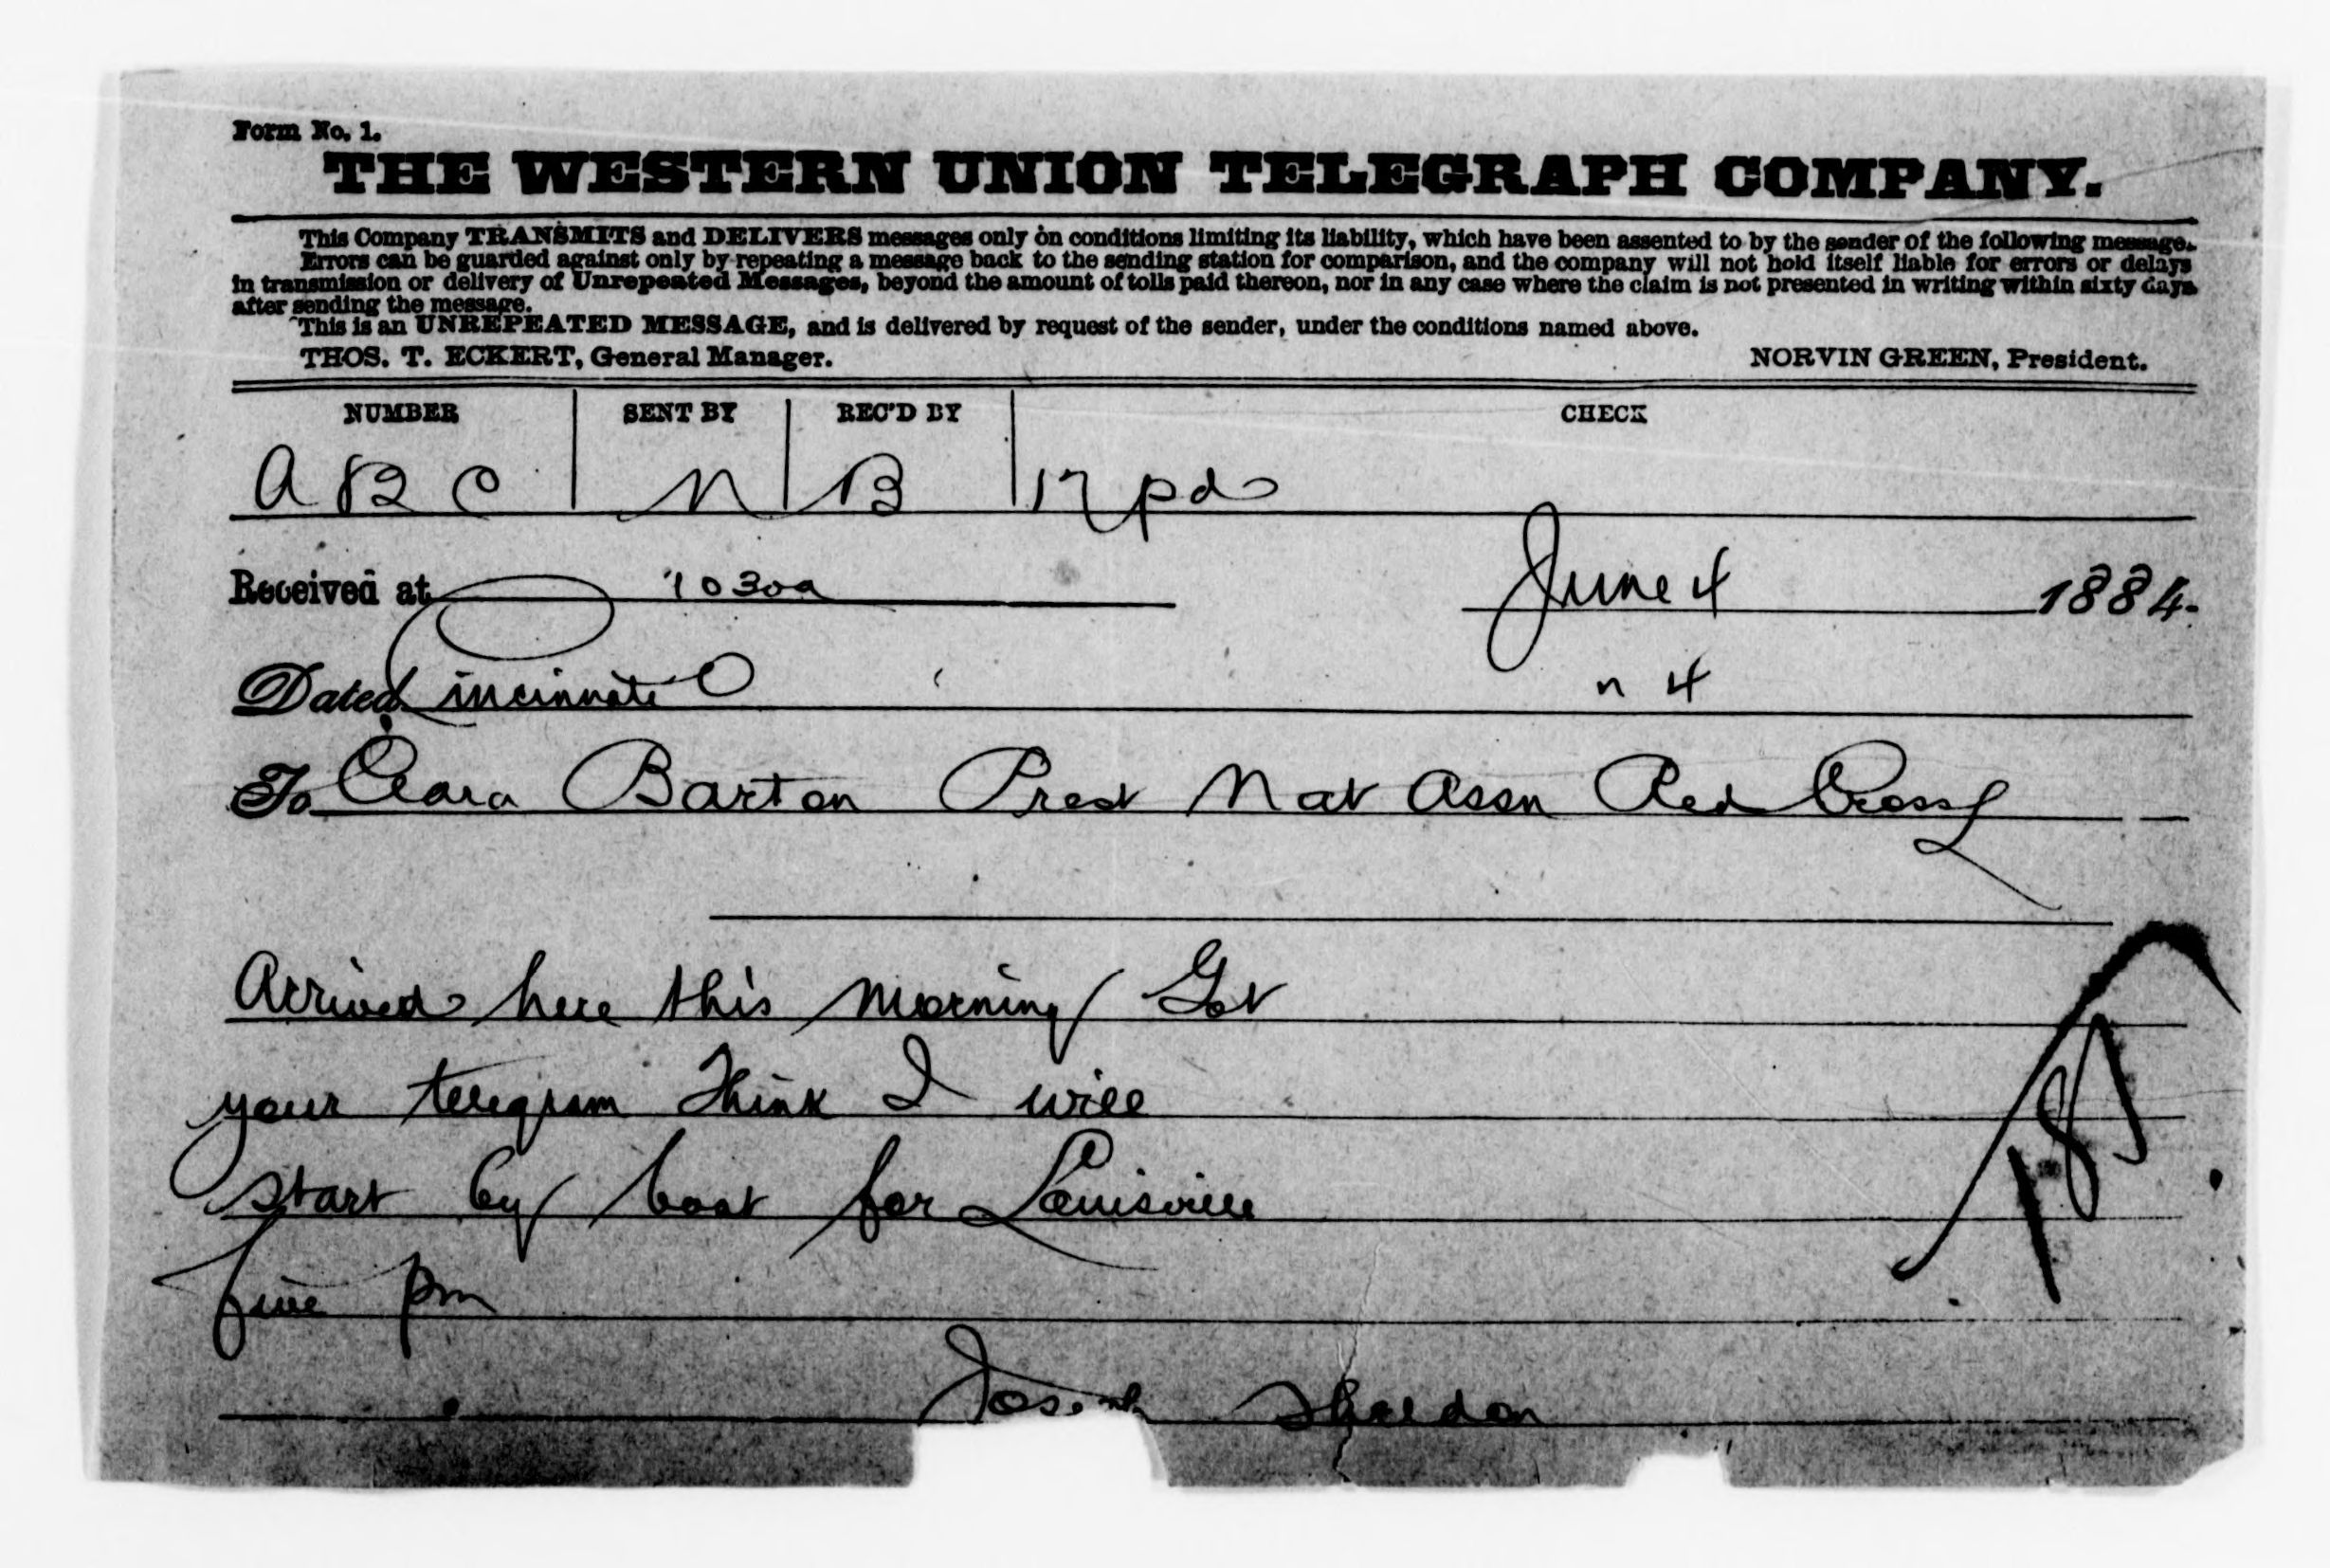 Form No. 1.
THE WESTERN UNION TELEGRAPH COMPANY.
This Company TRANSMITS and DELIVERS messages only on conditions limiting its liability, which have been assented to by the sender of the following message.
Errors can be guarded against only by repeating a message back to the sending station for comparison, and the company will not hold itself liable for errors or delays
in transmission or delivery of Unrepeated Messages, beyond the amount of tolls paid thereon, nor in any case where the claim is not presented in writing within sixty days
after sending the message.
This is an UNREPEATED MESSAGE, and is delivered by request of the sender, under the conditions named above.
THOS. T. ECKERT, General Manager. NORVIN GREEN, President.
NUMBER SENT BY REC'D BY CHECK
N B 17 pd
Received at 1030a June 4 1884.
Dated Cincinnati O 4
To Clara Barton Prest Nat Assn Red Cross
Arrived here this morning Got
your telegram Think I will
start by boat for Louisville
five pm
Joseph Sheldon